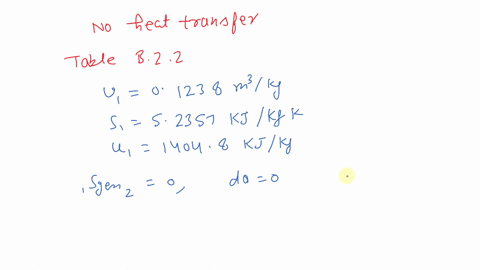 No heat transfer
Table B.2.2
υ₁ = 0.1238 m³/kg
S₁ = 5.2357 KJ/kg K
u₁ = 1404.8 KJ/kg
₁Sgen₂ = 0, dQ = 0